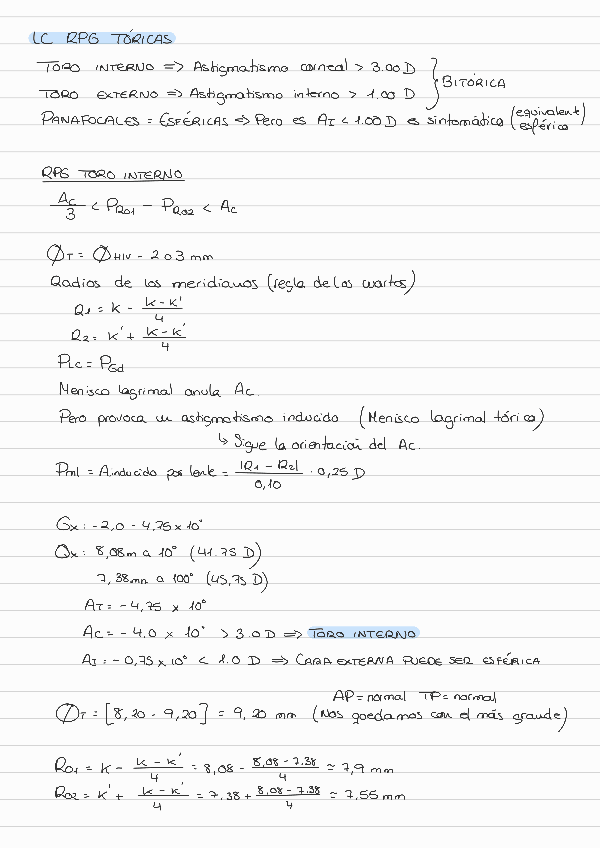 LC RPG TÓRICAS
TORO INTERNO => Astigmatismo corneal > 3.00 D
TORO EXTERNO => Astigmatismo interno > 1.00 D } BITÓRICA
PANAFOCALES = ESFÉRICAS => Pero es AI < 1.00 D o sintomática (equivalent esférico)
RPG TORO INTERNO
Ac/3 < PR01 - PR02 < Ac
ØT = ØHIV - 2 o 3 mm
Radios de los meridianos (regla de los cuartos)
R1 = K - (K - K')/4
R2 = K' + (K - K')/4
PLC = PGd
Menisco lagrimal anula Ac.
Pero provoca un astigmatismo inducido (Menisco lagrimal tórico)
↳ Sigue la orientación del Ac.
Pml = A.inducido por lente = |R1 - R2|/0,10 · 0,25 D
Gx: -2,0 - 4,75 x 10°
Qx: 8,08m a 10° (41.75 D)
7,38mm a 100° (45,75 D)
AT = -4,75 x 10°
AC = -4.0 x 10° > 3.0 D => TORO INTERNO
AI = -0,75 x 10° < 1.0 D => CARA EXTERNA PUEDE SER ESFÉRICA
AP = normal TP = normal
ØT = [8,20 - 9,20] = 9,20 mm (Nos quedamos con el más grande)
R01 = K - (K - K')/4 = 8,08 - (8,08 - 7.38)/4 ≈ 7,9 mm
R02 = K' + (K - K')/4 = 7.38 + (8,08 - 7.38)/4 ≈ 7,55 mm